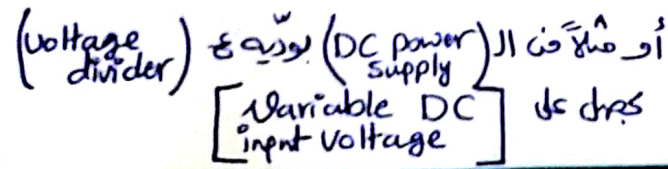 أو مثلاً من الـ (DC power supply) بودّيه ع (voltage divider)
بحصل على [Variable DC input voltage]